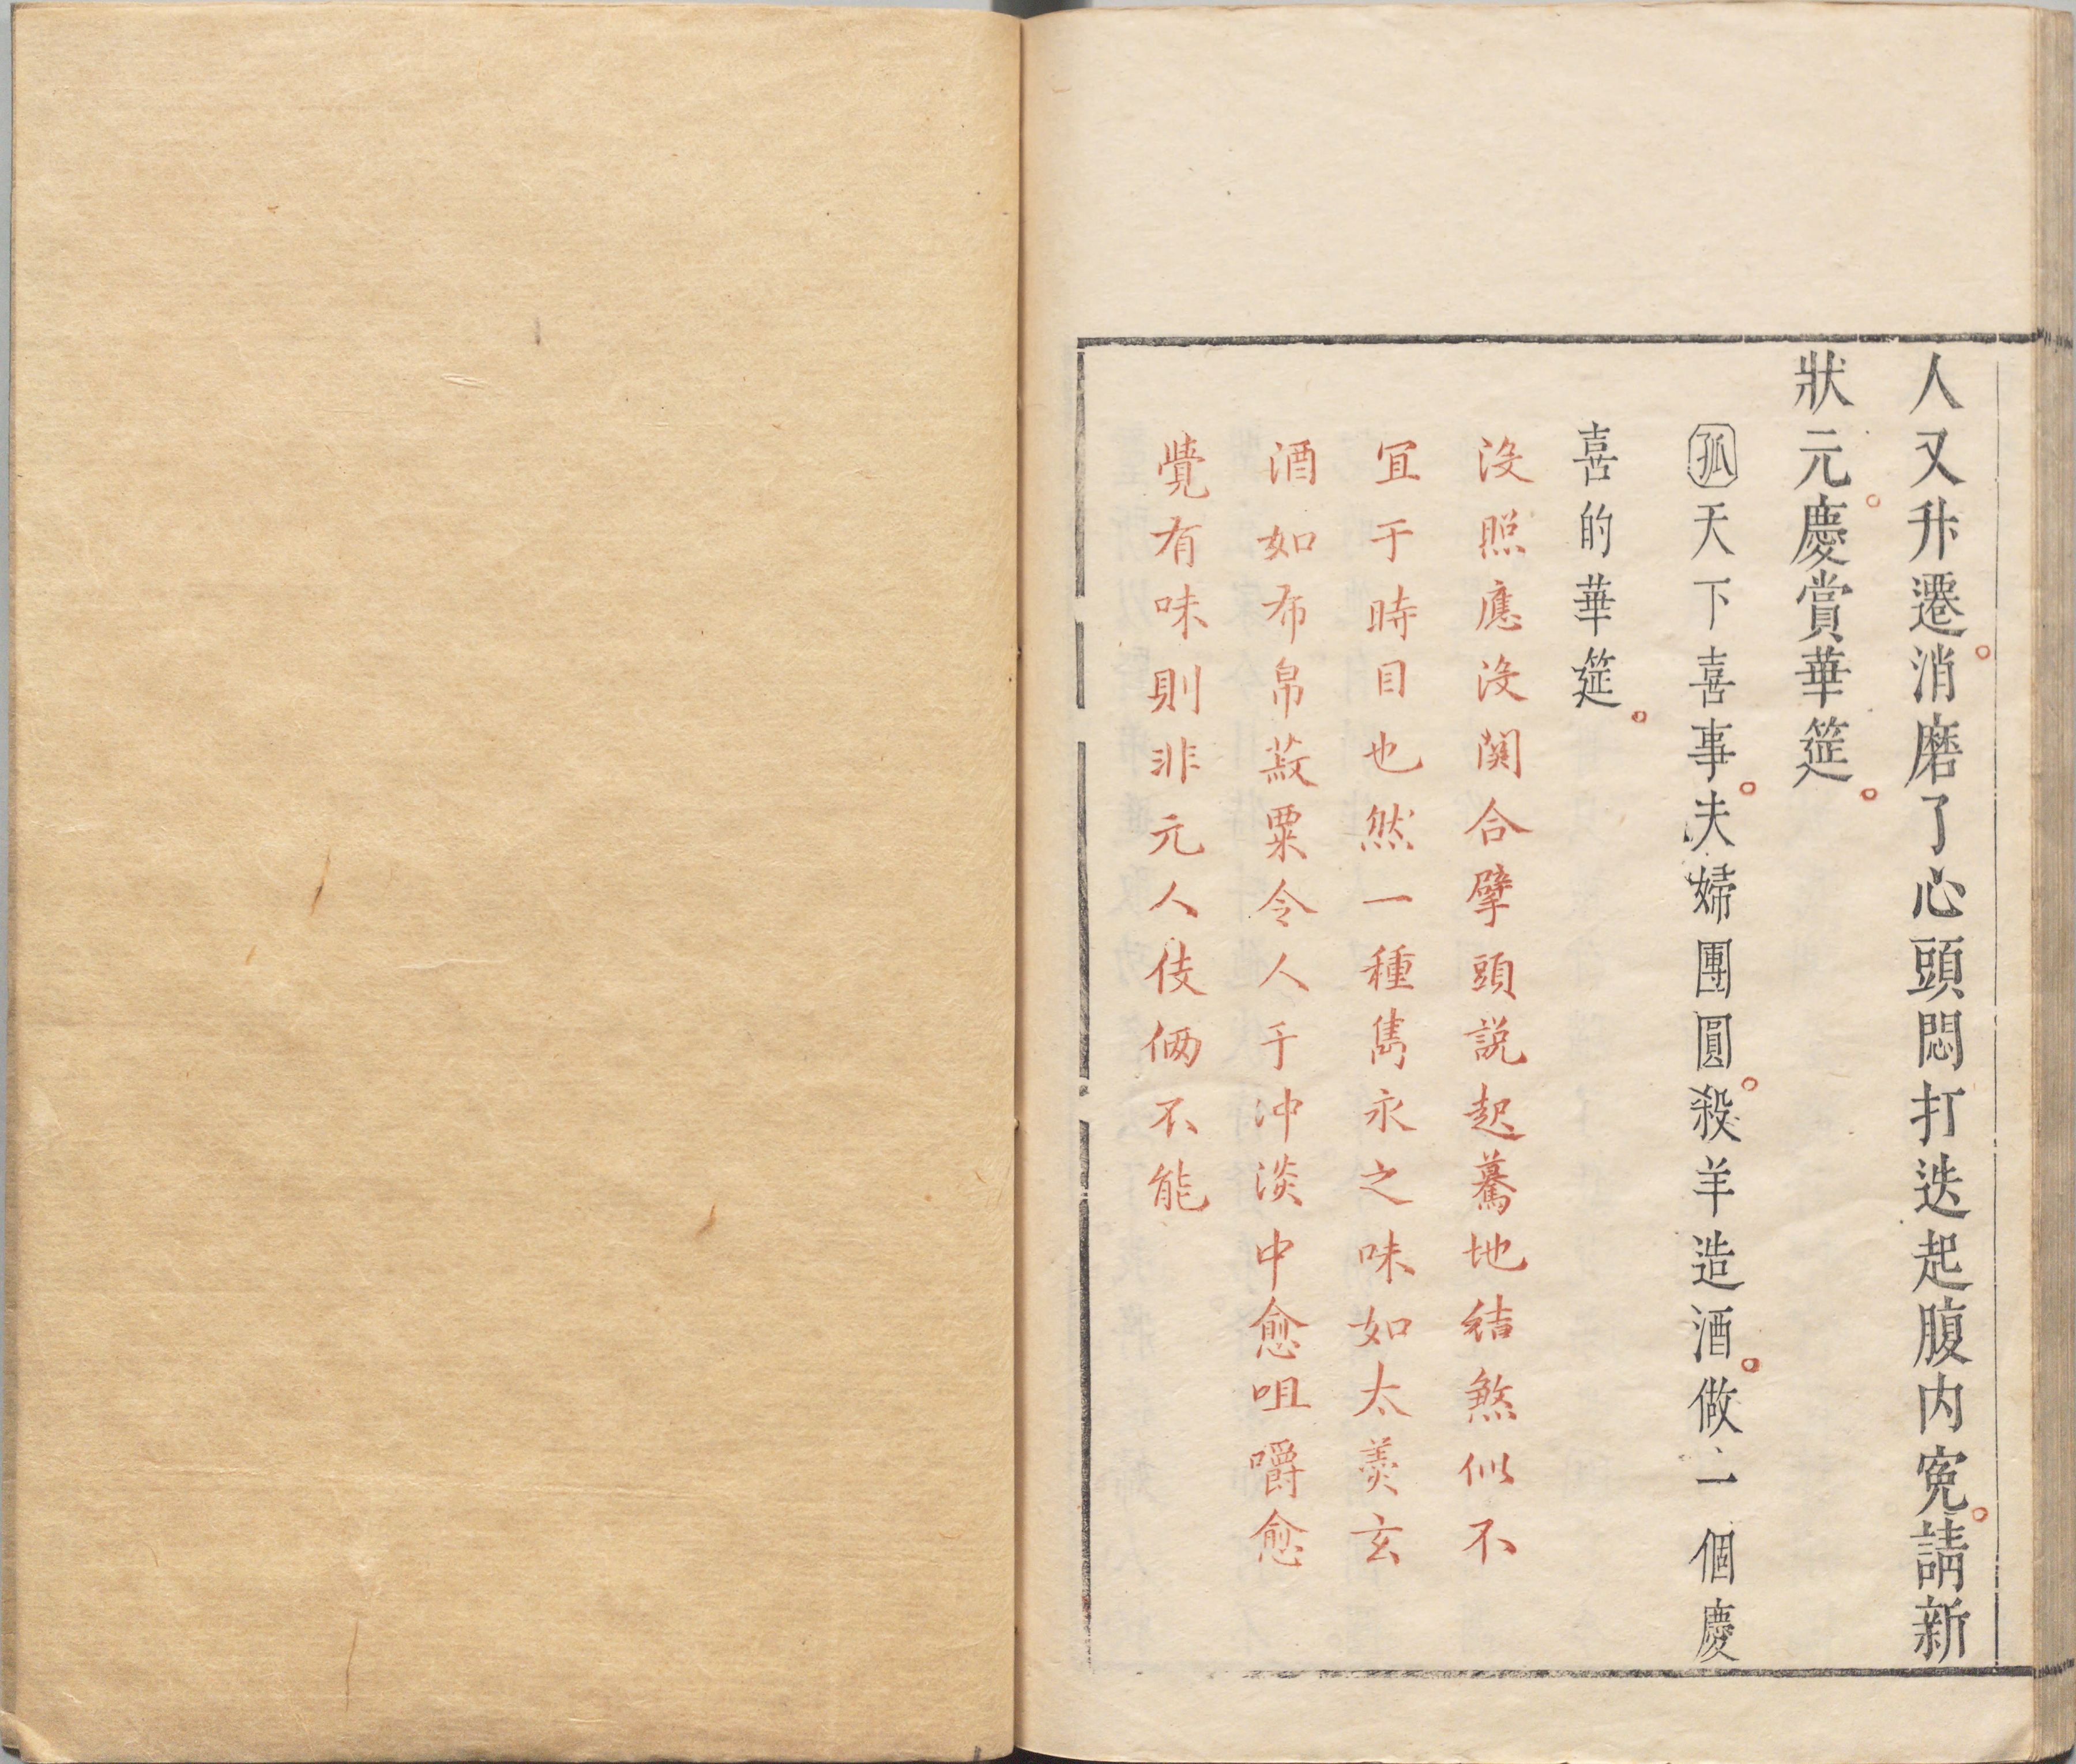 人又升遷消磨了心頭悶打迭起腹内寃請新
狀元慶賞華筵
孤天下喜事夫婦團圓殺羊造酒做一個慶
喜的華筵
没照應没関合擘頭説起驀地結煞似不
冝于時目也然一種雋永之味如太羮玄
酒如布帛菽粟令人于冲淡中愈咀嚼愈
覺有味則非元人伎倆不能